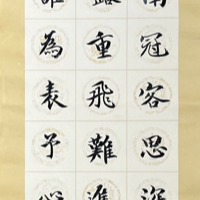 南冠客思深
露重飛難進
誰為表予心